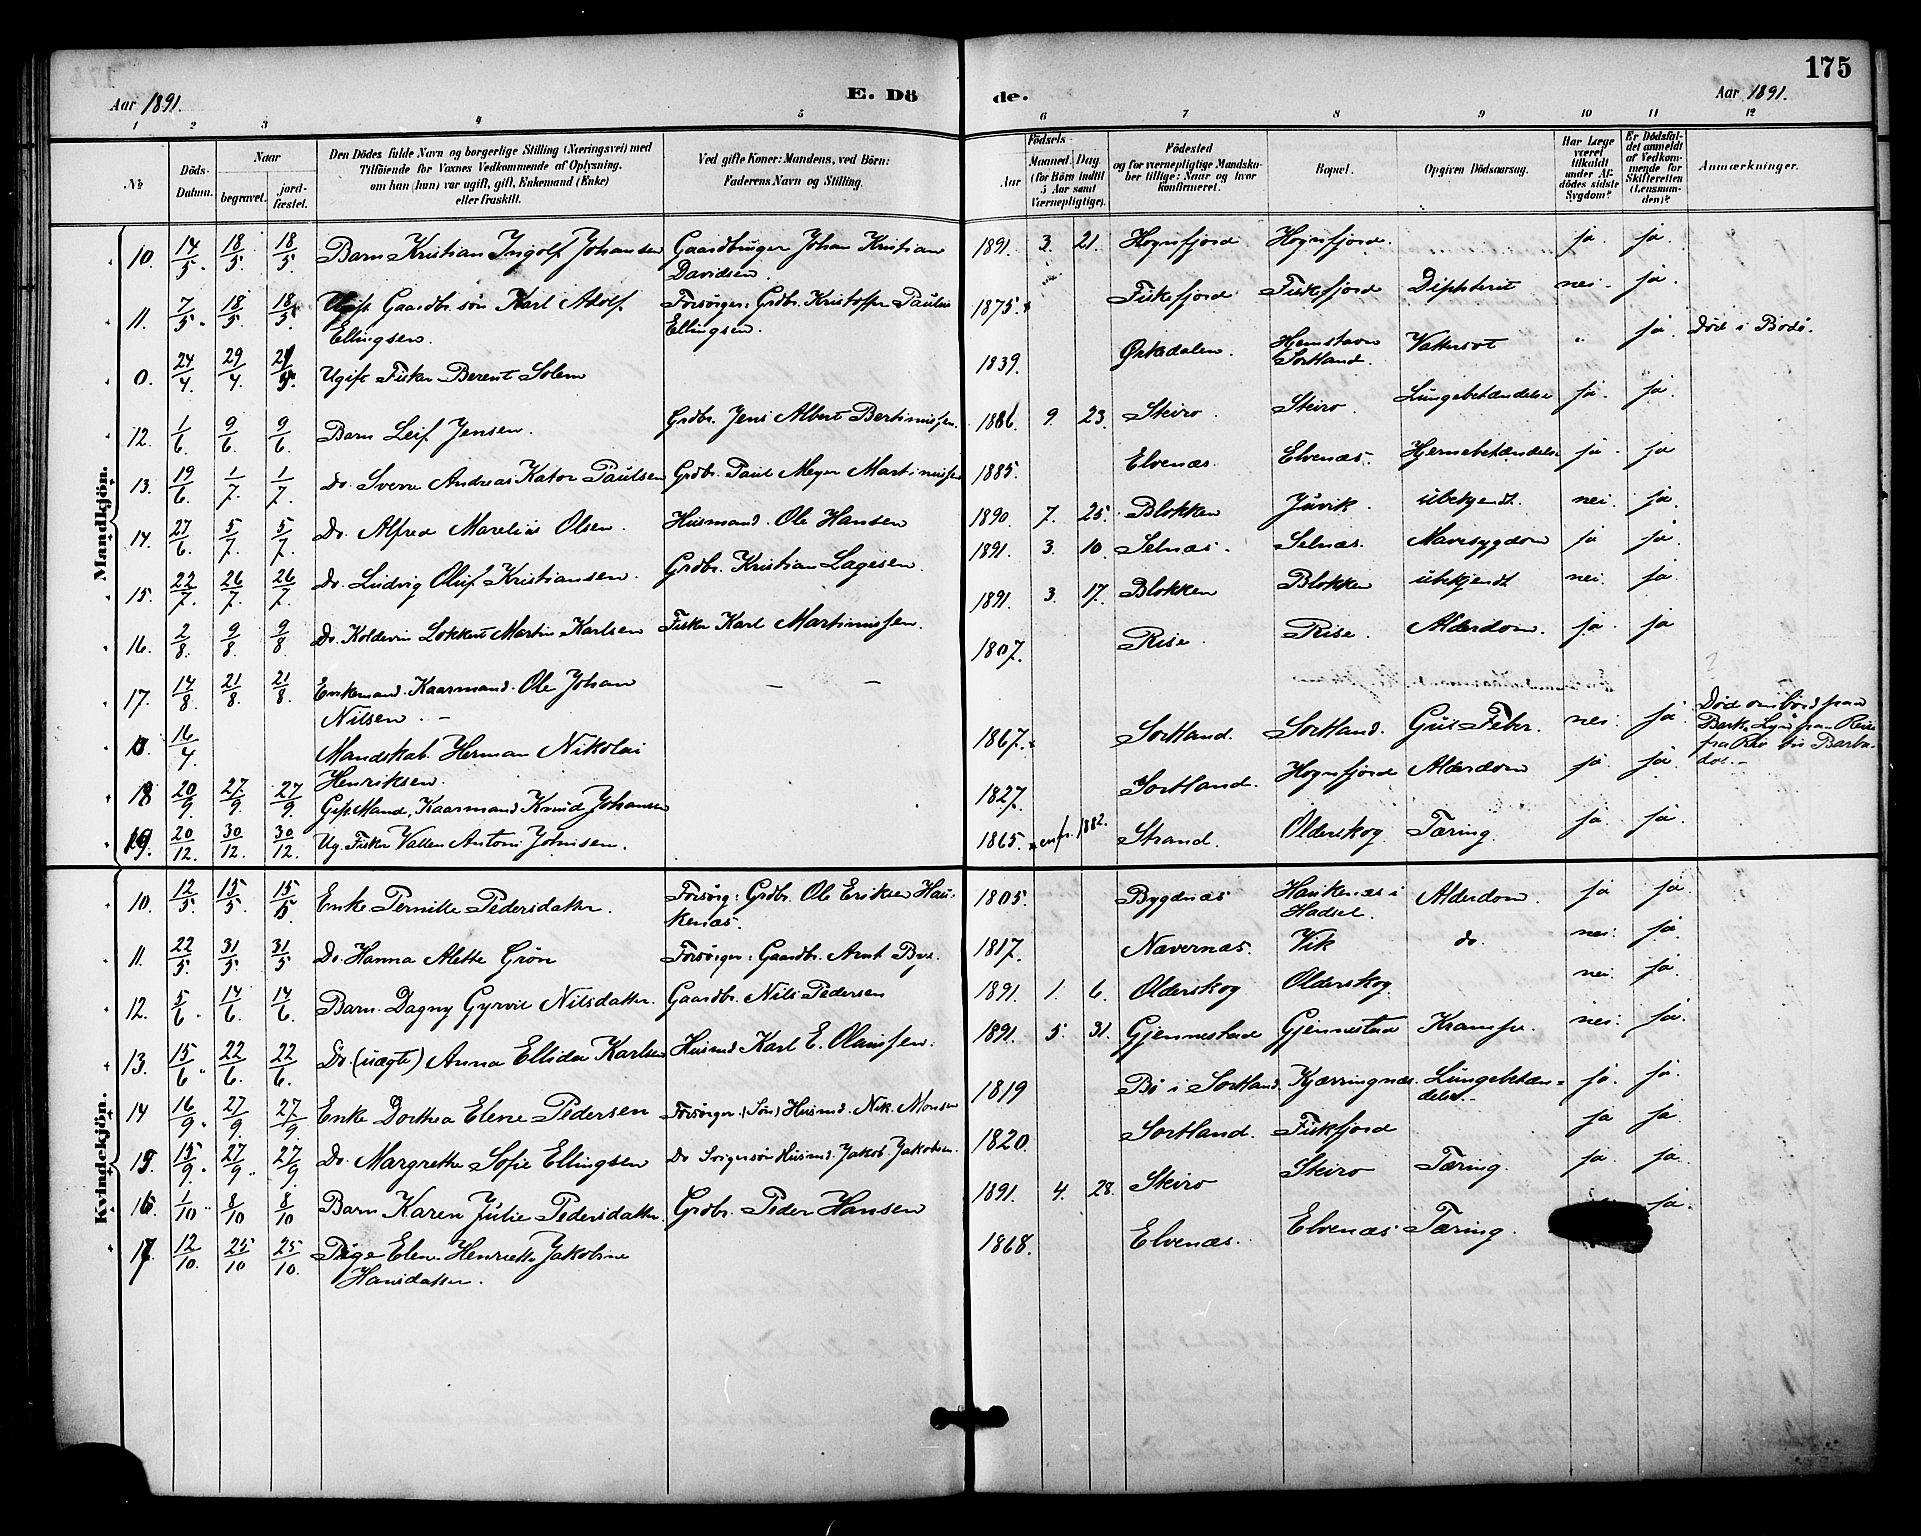 175
Aar 1891.
E. Dö
de.
Aar 1891.
1 2 3 4 5 6 7 8 9 10 11 12
№
Döds-
Datum.
Naar
begravet.
jord-
fæstet.
Den Dödes fulde Navn og borgerlige Stilling (Næringsvei) med
Tilföiende for Voxnes Vedkommende af Oplysning,
om han (hun) var ugift, gift, Enkemand (Enke)
eller fraskilt.
Ved gifte Koner: Mandens, ved Börn:
Faderens Navn og Stilling.
Födsels-
Aar
Maaned.
Dag
(for Börn indtil
5 Aar samt
Værnepligtige).
Födested
og for værnepligtige Mandska-
ber tillige: Naar og hvor
konfirmeret.
Bopæl.
Opgiven Dödsaarsag.
Har Læge
været
tilkaldt
under Af-
dödes sidste
Sygdom?
Er Dödsfal-
det anmeldt
af Vedkom-
mende for
Skifteretten
(Lensman-
den)?
Anmærkninger.
Mandkjön.
10. 14/5. 18/5 18/5. Barn Kristian Ingolf Johansen Gaardbruger Johan Kristian 1891. 3. 21. Hognfjord Hognfjord. ja. ja.
Davidsen.
11. 7/5. 18/5 18/5. Ugift. Gaardbr. søn Karl Adolf Forsörger: Grdbr. Kristoffer Paulin 1875. Fiskefjord Fiskefjord Diphterit nei. ja.
Ellingsen. Ellingsen.
0. 24/4. 29/4. Ugift Fisker Berent Solem 1839. Ørkedalen. Hemstavn Vattersot " ja. Død i Bodø.
Sortland.
12. 1/6 9/6 9/6. Barn Leif Jensen. Grdbr. Jens Albert Bertinussen. 1886. 9. 23. Skeiro. Skeiro. Lungebetændelse ja. ja.
13. 19/6. 1/7. 1/7. Do. Sverre Andreas Kator Paulsen Grdbr. Paul Meyer Martinussen 1885. Elvenæs. Elvenæs. Hjernebetændelse ja. ja
14. 27/6. 5/7. 5/7. Do. Alfred Marelius Olsen. Husmand. Ole Hansen 1890. 7. 25. Blokken Juvik. ubekjendt. nei. ja.
15. 22/7. 26/7. 26/7. Do. Ludvig Oluf Kristiansen. Grdbr. Kristian Lagesen. 1891. 3. 10. Selnæs. Selnæs. Mavesygdom ja ja.
16. 2/8. 9/8. 9/8. Do. Koldevin Lokkert Martin Karlsen Fisker Karl Martinussen. 1891. 3. 17. Blokken Blokken ubekjendt nei. ja.
17. 14/8. 21/8. 21/8. Enkemand. Kaarmand. Ole Johan — — 1807. Rise. Rise. Alderdom. ja. ja
Nilsen. —
0. 16/4. Mandskab. Herman Nikolai 1867. Sortland. Sortland. Gul Feber. nei. ja. Død ombord paa
Henriksen. Bark
18 20/9. 27/9. 27/9. Gift Mand, Kaarmand Knud Johansen 1827. Sortland. Hognfjord Alderdom ja. ja.
19. 20/12. 30/12. 30/12. Ug. Fisker Vallen Antoni Johnsen. 1865. 1882. Strand. Olderskog Tæring. ja. ja.
Kvindekjön.
10. 12/5. 15/5. 15/5 Enke Pernille Pedersdatter. Forsörg: Grdbr. Ole Eriksen Hau- 1805. Bygdnæs Haukenæs i Alderdom. ja ja.
kenæs. Hadsel.
11. 22/5. 31/5. 31/5 Do. Hanna Alette Grön Forsörger: Gaardbr. Arnt Bye. 1817. Navernæs. Vik do. nei. ja.
12. 5/6. 14/6. 14/6. Barn. Dagny Gyrvie Nilsdatter. Gaardbr. Nils Pedersen 1891. 1. 6. Olderskog Olderskog. nei. ja.
13. 15/6. 22/6. 22/6. Do. (uægte) Anna Ellida Karlsen Husmd Karl E. Olaussen. 1891. 5. 31. Gjennestad Gjennestad Krampe. nei. ja.
14 16/9. 27/9. 27/9. Enke Dorthea Elene Pedersen Forsörger (Søn) Husmd. Nik. Monsen 1819 Bö i Sortland. Kjærringnæs. Lungebetæn- ja. ja.
delse
15. 15/9. 27/9. 27/9. Do. Margrethe Sofie Ellingsen Do Svigersön Husmd. Jakob Jakobsen. 1820. Sortland. Fiskfjord ja ja.
16. 1/10. 8/10 8/10 Barn Karen Julie Pedersdatter. Grdbr. Peder Hansen 1891. 4. 28. Skeiro Skeiro Tæring. ja. ja.
17 12/10. 25/10 25/10. Pige Elen Henriette Jakobine 1868. Elvenæs. Elvenæs Tæring. ja.
Hansdatter.